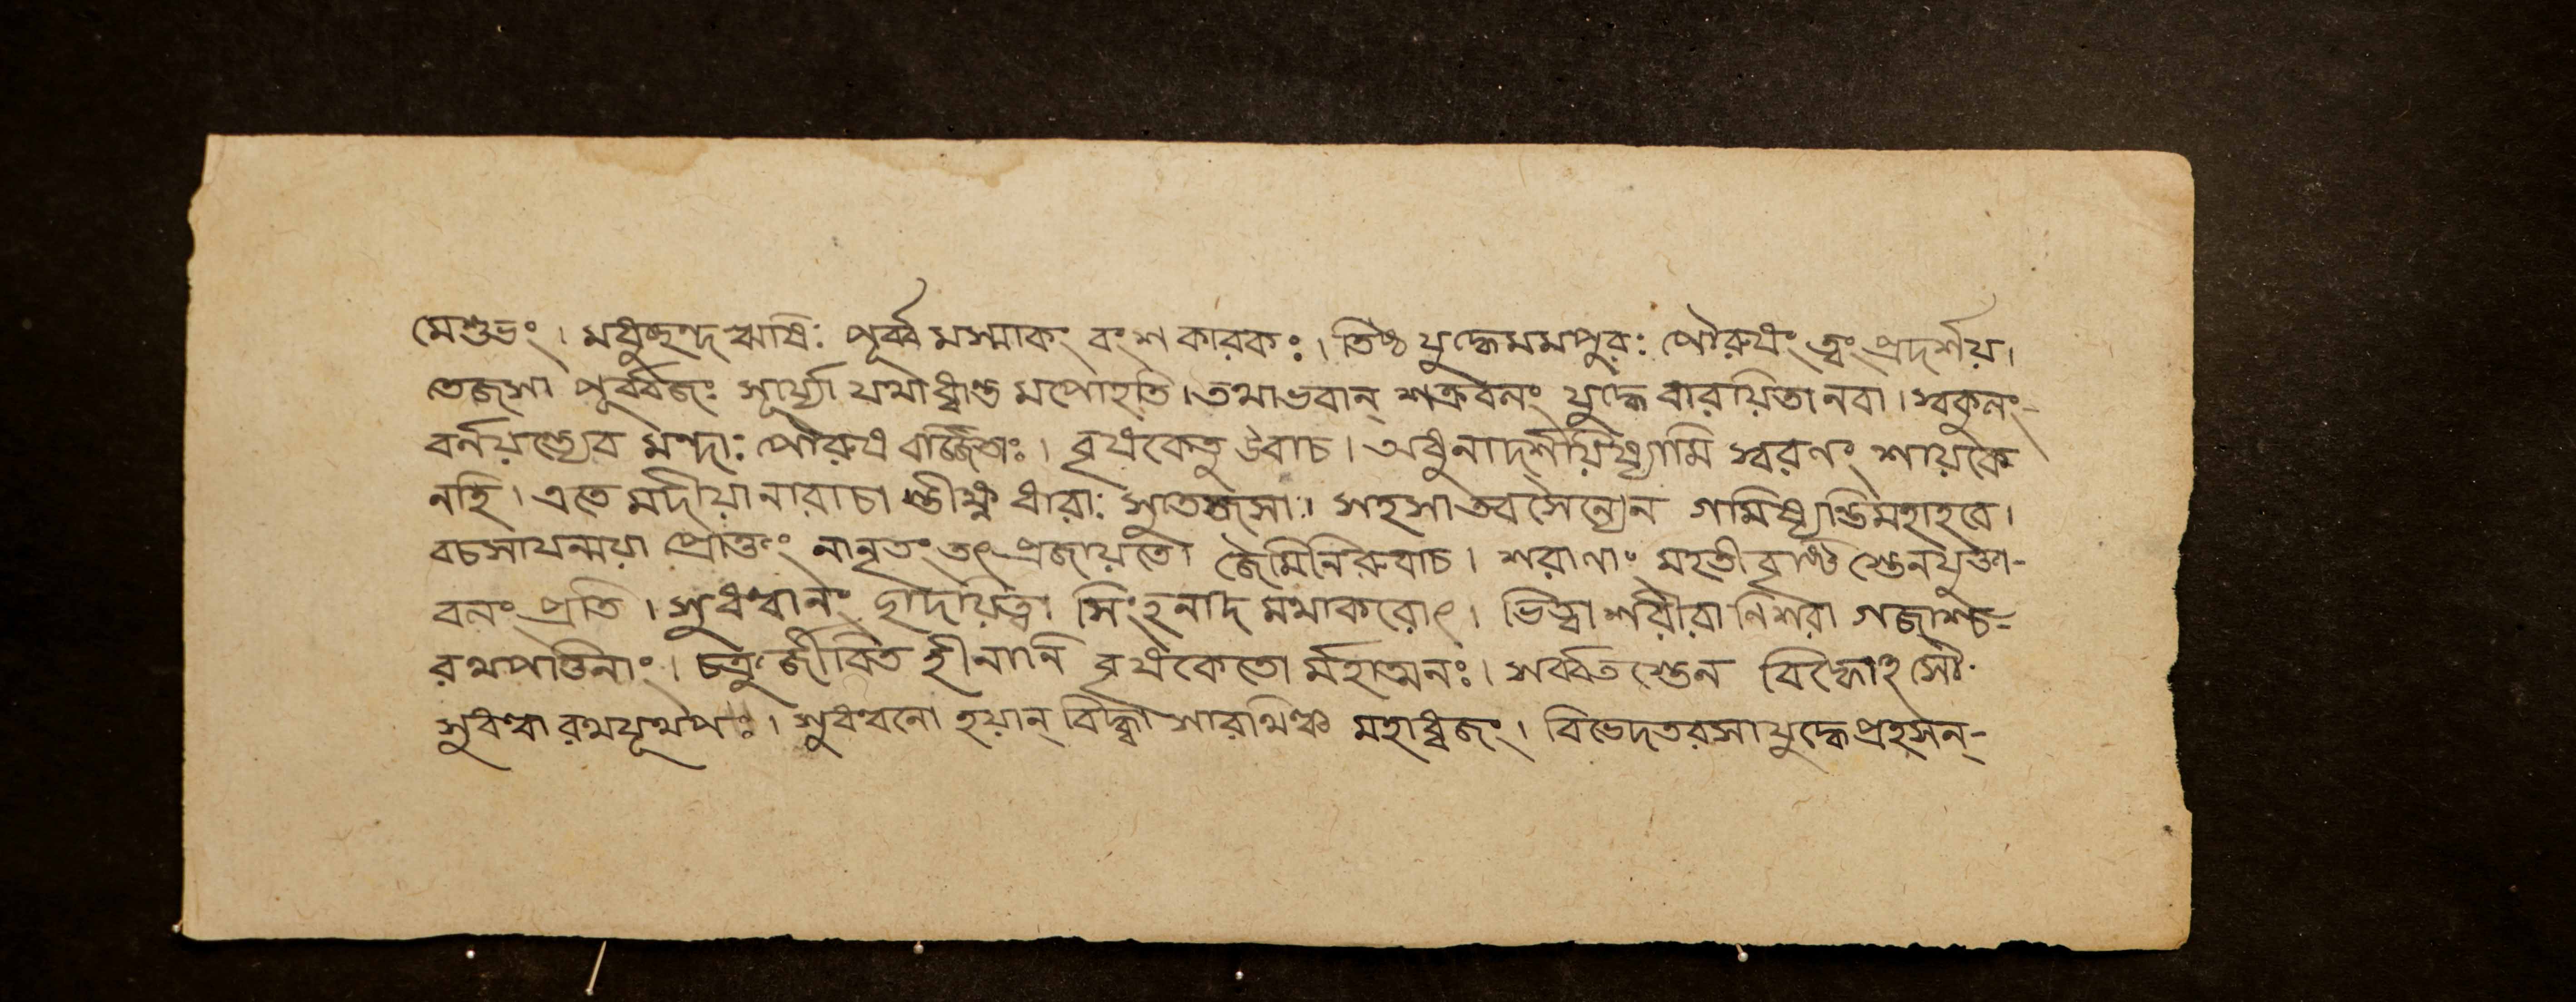 মেশুভং। মধুচ্ছন্দ ঋষিঃ পূর্ব্বমস্মাকং বংশকারকঃ। তিষ্ঠ যুদ্ধেমমপুরঃ পৌরুষং ত্বং প্রদর্শয়।
তেজসা পূর্ব্বজঃ সূর্য্যো যথাধ্বান্ত মপোহতি। তথাভবান্ শত্রুবলং যুদ্ধে বারয়িতানবা। স্বকুলং-
বর্নয়ন্ত্যেব মন্দাঃ পৌরুষ বর্জ্জিতাঃ। বৃষকেতু উবাচ। অধুনাদর্শয়িষ্যামি স্বরণং শায়কৈ
নহি। এতে মদীয়া নারাচা স্তীক্ষ্ণ ধারাঃ সুতেজসাঃ। সহসা তবসৈন্যেন গমিষ্যন্তিমহাহবে।
বচসাযন্ময়া প্রোক্তং নানৃতং তৎ প্রজায়তে। জৈমিনিরুবাচ। শরাণাং মহতীবৃষ্টি স্তেনযুক্তা-
বলং প্রতি। সুধন্বানং ছাদয়িত্বা সিংহনাদ মথাকরোৎ। ভিত্বা শরীরাণিশরা গজাশ্ব-
রথপত্তিনাং। চক্রু র্জীবিত হীনানি বৃষকেতো র্মহাত্মনঃ। সর্ব্বত স্তেন বিদ্ধোহসৌ
সুধন্বা রথযূথপঃ। সুধন্বনো হয়ান্ বিদ্ধ্বা সারথিঞ্চ মহাধ্বজং। বিভেদতরসাযুদ্ধেপ্রহসন্-